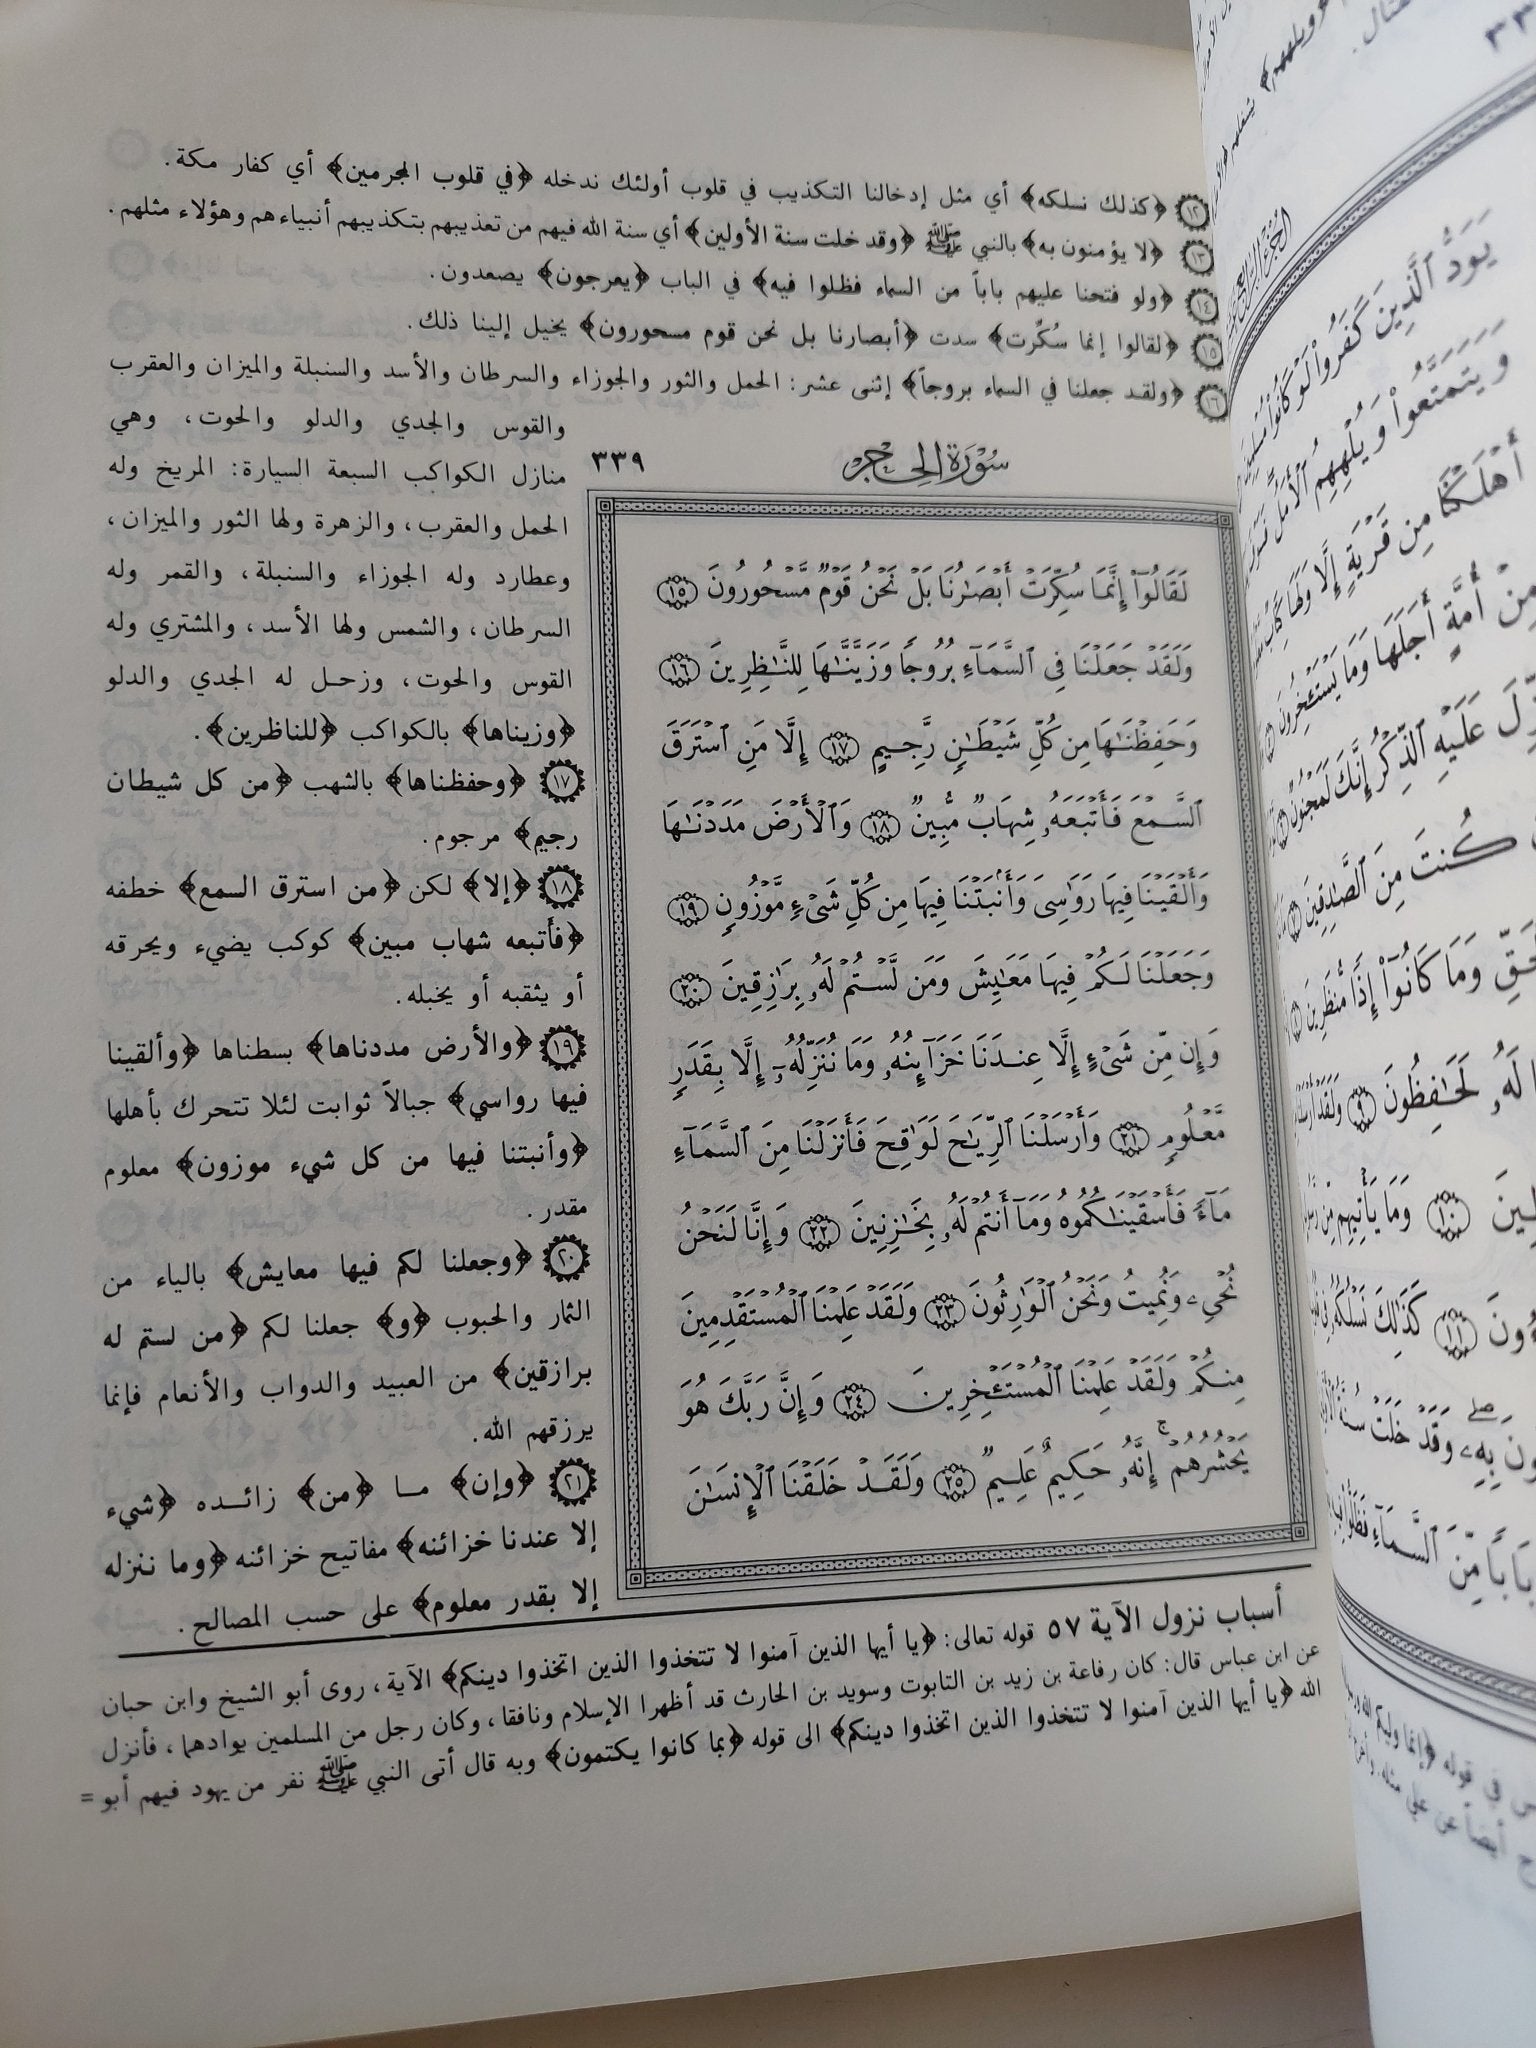 ١٢ ﴿كذلك نسلكه﴾ أي مثل إدخالنا التكذيب في قلوب أولئك ندخله ﴿في قلوب المجرمين﴾ أي كفار مكة.
١٣ ﴿لا يؤمنون به﴾ بالنبي ﷺ ﴿وقد خلت سنة الأولين﴾ أي سنة الله فيهم من تعذيبهم بتكذيبهم أنبياءهم وهؤلاء مثلهم.
١٤ ﴿ولو فتحنا عليهم باباً من السماء فظلوا فيه﴾ في الباب ﴿يعرجون﴾ يصعدون.
١٥ ﴿لقالوا إنما سُكِّرت﴾ سدت ﴿أبصارنا بل نحن قوم مسحورون﴾ يخيل إلينا ذلك.
١٦ ﴿ولقد جعلنا في السماء بروجاً﴾ إثنى عشر: الحمل والثور والجوزاء والسرطان والأسد والسنبلة والميزان والعقرب
والقوس والجدي والدلو والحوت، وهي
منازل الكواكب السبعة السيارة: المريخ وله
الحمل والعقرب، والزهرة ولها الثور والميزان،
وعطارد وله الجوزاء والسنبلة، والقمر وله
السرطان، والشمس ولها الأسد، والمشتري وله
القوس والحوت، وزحل له الجدي والدلو
﴿وزيناها﴾ بالكواكب ﴿للناظرين﴾.
١٧ ﴿وحفظناها﴾ بالشهب ﴿من كل شيطان
رجيم﴾ مرجوم.
١٨ ﴿إلا﴾ لكن ﴿من استرق السمع﴾ خطفه
﴿فأتبعه شهاب مبين﴾ كوكب يضيء ويحرقه
أو يثقبه أو يخبله.
١٩ ﴿والأرض مددناها﴾ بسطناها ﴿وألقينا
فيها رواسي﴾ جبالاً ثوابت لئلا تتحرك بأهلها
﴿وأنبتنا فيها من كل شيء موزون﴾ معلوم
مقدر.
٢٠ ﴿وجعلنا لكم فيها معايش﴾ بالياء من
الثمار والحبوب ﴿و﴾ جعلنا لكم ﴿من لستم له
برازقين﴾ من العبيد والدواب والأنعام فإنما
يرزقهم الله.
٢١ ﴿وإن﴾ ما ﴿من﴾ زائده ﴿شيء
إلا عندنا خزائنه﴾ مفاتيح خزائنه ﴿وما ننزله
إلا بقدر معلوم﴾ على حسب المصالح.
سُورَةُ الحِجْر ٣٣٩
لَقَالُوٓا۟ إِنَّمَا سُكِّرَتْ أَبْصَـٰرُنَا بَلْ نَحْنُ قَوْمٌ مَّسْحُورُونَ ١٥
وَلَقَدْ جَعَلْنَا فِى ٱلسَّمَآءِ بُرُوجًا وَزَيَّنَّـٰهَا لِلنَّـٰظِرِينَ ١٦
وَحَفِظْنَـٰهَا مِن كُلِّ شَيْطَـٰنٍ رَّجِيمٍ ١٧ إِلَّا مَنِ ٱسْتَرَقَ
ٱلسَّمْعَ فَأَتْبَعَهُۥ شِهَابٌ مُّبِينٌ ١٨ وَٱلْأَرْضَ مَدَدْنَـٰهَا
وَأَلْقَيْنَا فِيهَا رَوَٰسِىَ وَأَنۢبَتْنَا فِيهَا مِن كُلِّ شَىْءٍ مَّوْزُونٍ ١٩
وَجَعَلْنَا لَكُمْ فِيهَا مَعَـٰيِشَ وَمَن لَّسْتُمْ لَهُۥ بِرَٰزِقِينَ ٢٠
وَإِن مِّن شَىْءٍ إِلَّا عِندَنَا خَزَآئِنُهُۥ وَمَا نُنَزِّلُهُۥٓ إِلَّا بِقَدَرٍ
مَّعْلُومٍ ٢١ وَأَرْسَلْنَا ٱلرِّيَـٰحَ لَوَٰقِحَ فَأَنزَلْنَا مِنَ ٱلسَّمَآءِ
مَآءً فَأَسْقَيْنَـٰكُمُوهُ وَمَآ أَنتُمْ لَهُۥ بِخَـٰزِنِينَ ٢٢ وَإِنَّا لَنَحْنُ
نُحْىِۦ وَنُمِيتُ وَنَحْنُ ٱلْوَٰرِثُونَ ٢٣ وَلَقَدْ عَلِمْنَا ٱلْمُسْتَقْدِمِينَ
مِنكُمْ وَلَقَدْ عَلِمْنَا ٱلْمُسْتَـْٔخِرِينَ ٢٤ وَإِنَّ رَبَّكَ هُوَ
يَحْشُرُهُمْ ۚ إِنَّهُۥ حَكِيمٌ عَلِيمٌ ٢٥ وَلَقَدْ خَلَقْنَا ٱلْإِنسَـٰنَ
أسباب نزول الآية ٥٧ قوله تعالى: ﴿يا أيها الذين آمنوا لا تتخذوا الذين اتخذوا دينكم﴾ الآية، روى أبو الشيخ وابن حبان
عن ابن عباس قال: كان رفاعة بن زيد بن التابوت وسويد بن الحارث قد أظهرا الإسلام ونافقا، وكان رجل من المسلمين يوادهما، فأنزل
الله ﴿يا أيها الذين آمنوا لا تتخذوا الذين اتخذوا دينكم﴾ الى قوله ﴿بما كانوا يكتمون﴾ وبه قال أتى النبي ﷺ نفر من يهود فيهم أبو =
يَوَدُّ ٱلَّذِينَ كَفَرُوا۟ لَوْ كَانُوا۟ مُسْلِمِينَ
وَيَتَمَتَّعُوا۟ وَيُلْهِهِمُ ٱلْأَمَلُ
أَهْلَكْنَا مِن قَرْيَةٍ إِلَّا وَلَهَا كِتَابٌ
مِنْ أُمَّةٍ أَجَلَهَا وَمَا يَسْتَـْٔخِرُونَ
عَلَيْهِ ٱلذِّكْرُ إِنَّكَ لَمَجْنُونٌ
كُنتَ مِنَ ٱلصَّـٰدِقِينَ
وَمَا كَانُوٓا۟ إِذًا مُّنظَرِينَ
لَهُۥ لَحَـٰفِظُونَ ٩ وَلَقَدْ
١٠ وَمَا يَأْتِيهِم مِّن
١١ كَذَٰلِكَ نَسْلُكُهُۥ فِى
بِهِۦ ۖ وَقَدْ خَلَتْ سُنَّةُ
بَابًا مِّنَ ٱلسَّمَآءِ فَظَلُّوا۟